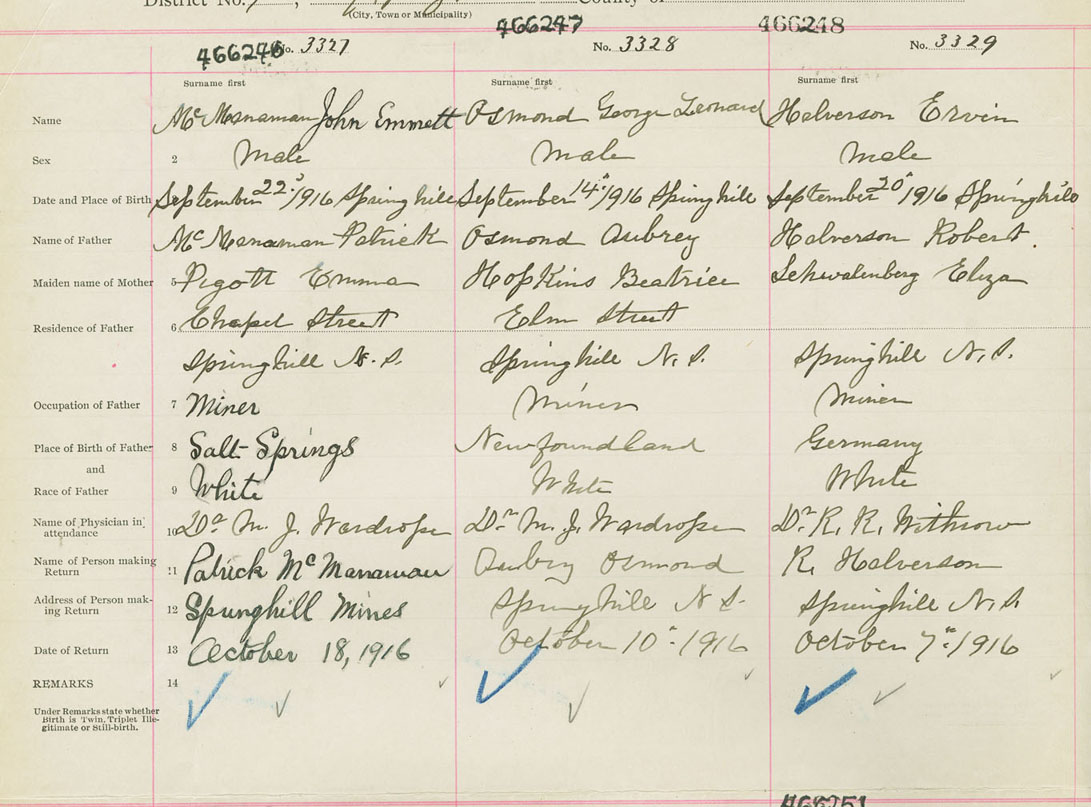 District No. 7, County of
(City, Town or Municipality)
466246 466247 466248
No. 3327 No. 3328 No. 3329
Surname first Surname first Surname first
Name McManaman John Emmett Osmond George Leonard Halverson Ervin
Sex 2 Male Male Male
Date and Place of Birth September 22nd/1916 Springhill September 14th/1916 Springhill September 20th/1916 Springhill
Name of Father McManaman Patrick Osmond Aubrey Halverson Robert.
Maiden name of Mother 5 Pigott Emma Hopkins Beatrice Schwalenberg Eliza
Residence of Father 6 Chapel Street Elm Street
Springhill N.S. Springhill N.S. Springhill N.S.
Occupation of Father 7 Miner Miner Miner
Place of Birth of Father 8 Salt Springs Newfoundland Germany
and
Race of Father 9 White White White
Name of Physician in attendance 10 Dr M. J. Wardrope Dr M. J. Wardrope Dr R. R. Withrow
Name of Person making Return 11 Patrick McManaman Aubry Osmond R. Halverson
Address of Person making Return 12 Springhill Mines Springhill N S. Springhill N.S.
Date of Return 13 October 18, 1916 October 10th/1916 October 7th/1916
REMARKS 14
Under Remarks state whether
Birth is Twin, Triplet Ille-
gitimate or Still-birth.
466251